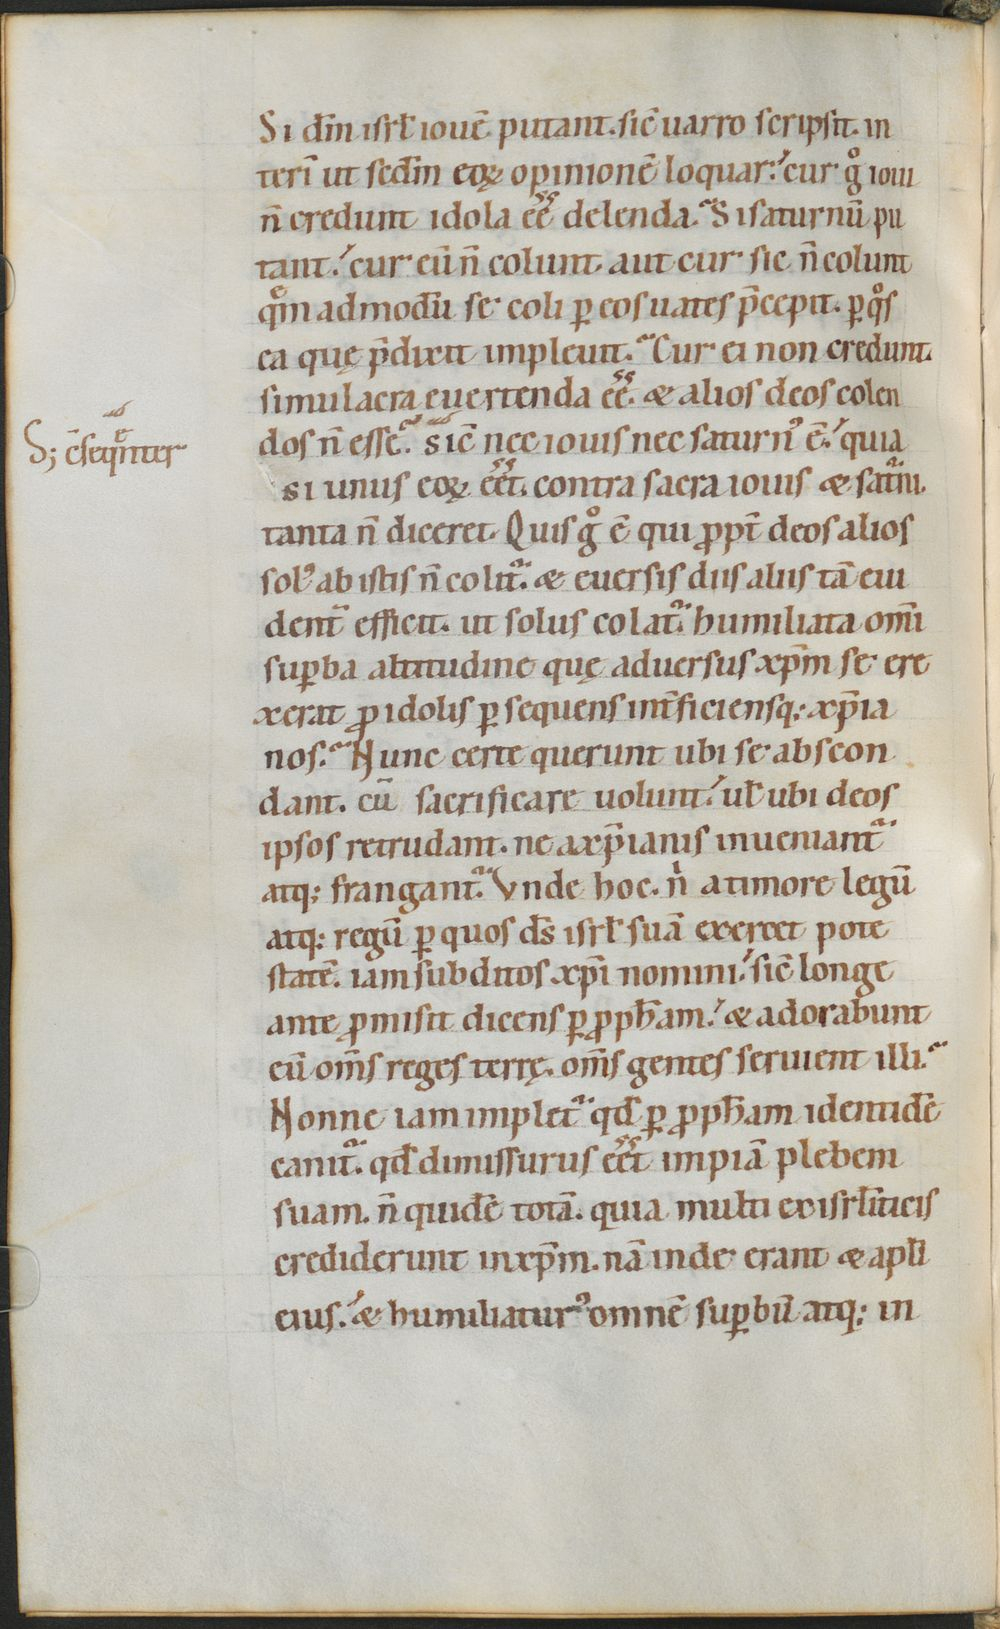 Si dm̄ isrł iouē putant. sic̄ uarro scripsit. in
teri ̄ ut scdm̄ eoꝝ opinionē loquar: cur gͦ ioui
n̄ credunt idola ee̅ delenda. Si saturnū pu
tant: cur eū n̄ colunt. aut cur sic n̄ colunt
qͤm admodū se coli ꝑ eos uates p̄cepit. ꝑ qͦs
ea quę p̄dixit impleuit. Cur ei non credunt
simulacra euertenda ee̅. & alios deos colen
dos n̄ esse.
S; c̄seqͤnter
sic̄ nec iouis nec saturnꝰ ē: quia
si unus eoꝝ ee̅t. contra sacra iouis & satͣni.
tanta n̄ diceret. Quis gͦ ē qui ꝓpt̄ deos alios
solꝰ ab istis n̄ colit᷑. & euersis diis aliis tā eui
dent᷑ efficit. ut solus colat᷑. humiliata om̄i
suꝑba altitudine quę aduersus xp̄m se ere
xerat ꝓ idolis ꝑsequens int̄ficiensq; xp̄ia
nos. Nunc certe querunt ubi se abscon
dant. cū sacrificare uolunt: uł ubi deos
ipsos retrudant. ne a xp̄ianis inueniant᷑
atq; frangant᷑. Vnde hoc. nͥ a timore legū
atq; regū ꝑ quos ds̄ isrł suā exercet pote
statē. iam subditos xp̄i nomini: sic̄ longe
ante ꝓmisit dicens ꝑ ꝓpħam: & adorabunt
eū om̄s reges terrę. om̄s gentes seruient illi.
Nonne iam implet᷑ qđ ꝑ ꝓpħam identidē
canit᷑. qđ dimissurus ee̅t impiā plebem
suam. n̄ quidē totā. quia multi ex isrł̄iticis
crediderunt in xp̄m. nā inde erant & apłi
eius: & humiliaturꝰ omnē suꝑbū atq; in